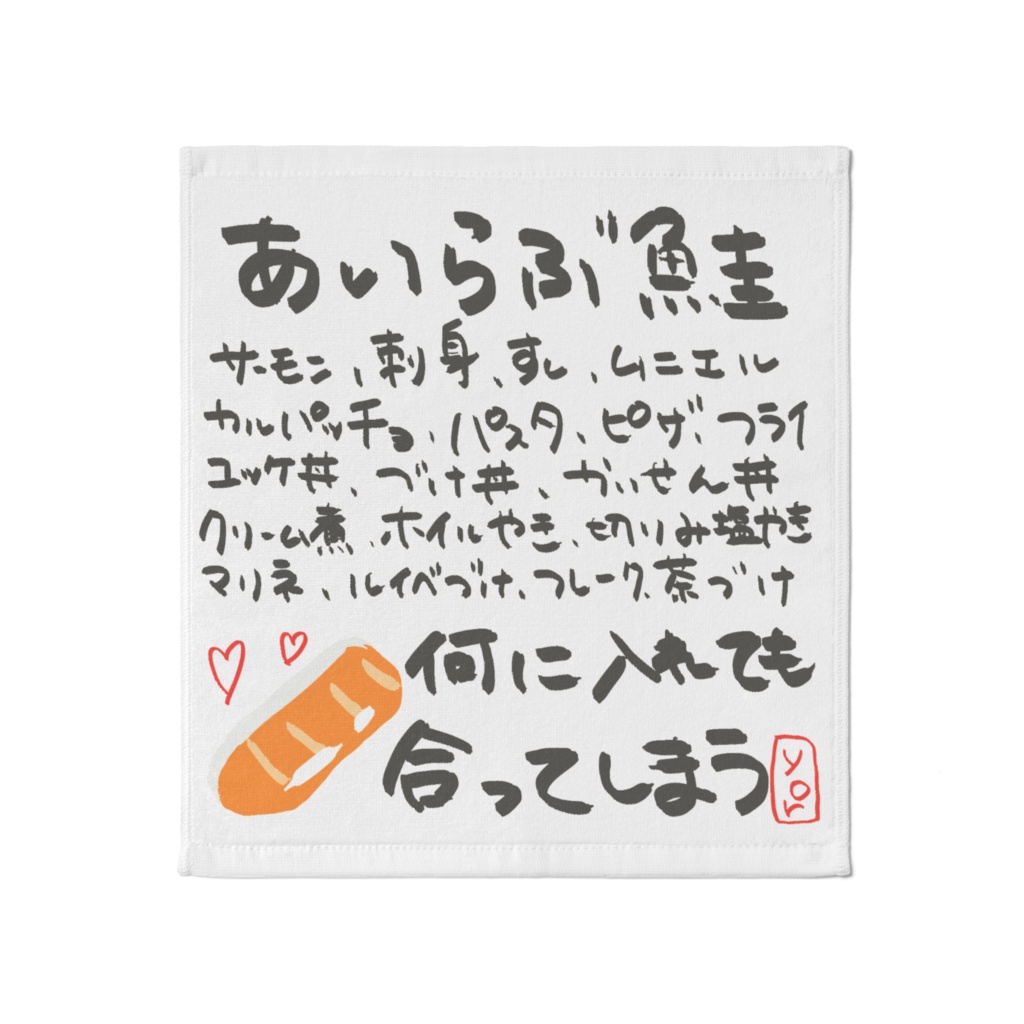 あいらぶ鮭
サーモン、刺身、すし、ムニエル
カルパッチョ、パスタ、ピザ、フライ
ユッケ丼、づけ丼、かいせん丼
クリーム煮、ホイルやき、切りみ塩やき
マリネ、ルイベづけ、フレーク、茶づけ
何に入れても
合ってしまう
yor